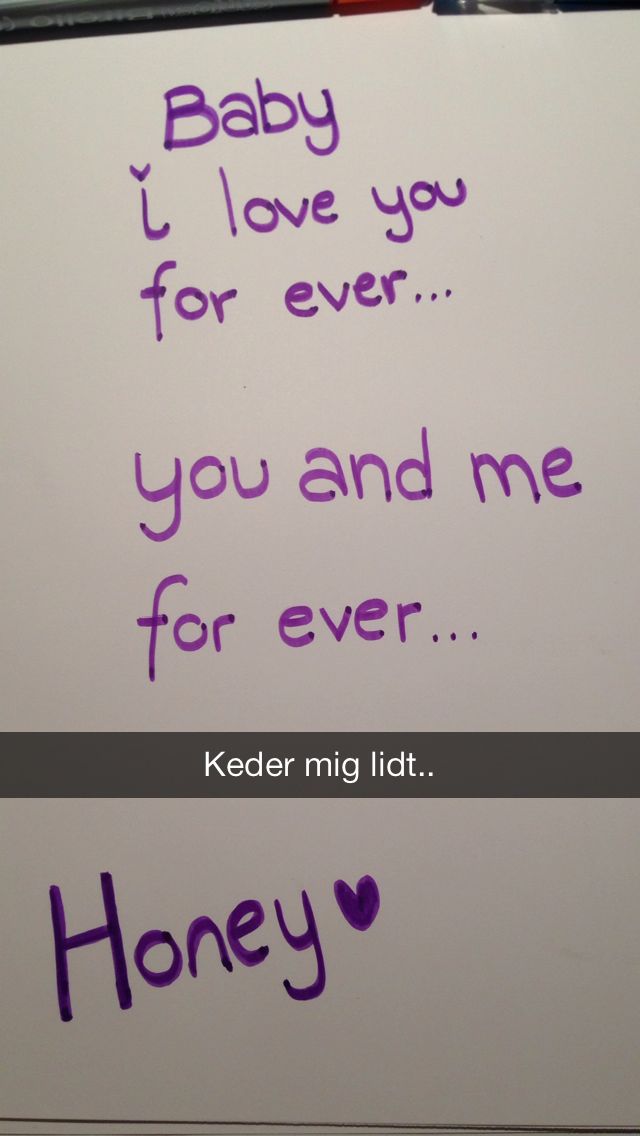 Baby
i love you
for ever...
you and me
for ever...
Keder mig lidt..
Honey♥